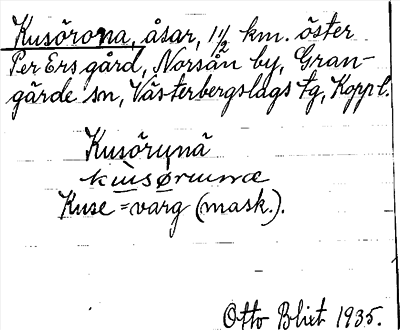 Kusörona, åsar, 1 1/2 km. öster
Per Ers gård, Norsån by, Gran-
gärde sn, Västerbergslags tg, Koppl.
Kusörųnä
Kuse = varg (mask.).
Otto Blixt 1935.